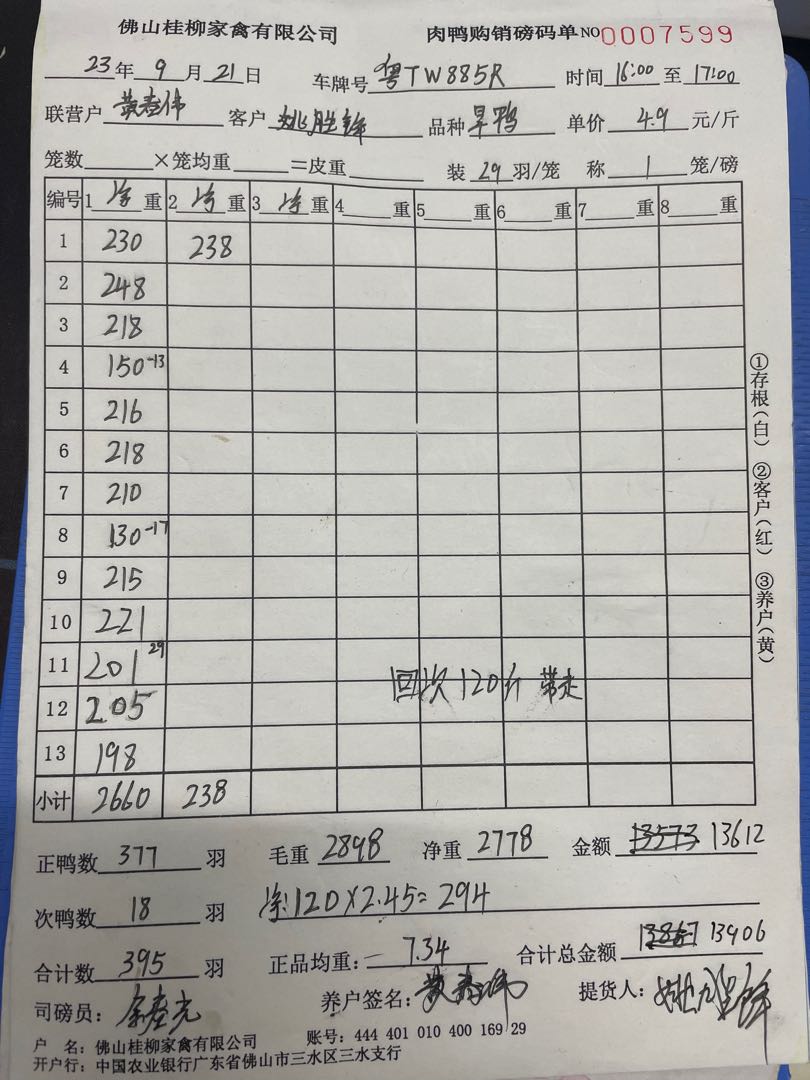 佛山桂柳家禽有限公司 肉鸭购销磅码单 NO 0007599
23年9月21日 车牌号 粤TW885R 时间 16:00 至 17:00
联营户 黄春伟 客户 姚胜锋 品种 旱鸭 单价 4.9 元/斤
笼数 ×笼均重 =皮重 装 29 羽/笼 称 1 笼/磅
编号 1 净 重 2 净 重 3 净 重 4 重 5 重 6 重 7 重 8 重
1 230 238
2 248
3 218
4 150-13
5 216
6 218
7 210
8 130-17
9 215
10 221
11 201 29
回次 120斤 带走
12 205
13 198
小计 2660 238
①存根(白) ②客户(红) ③养户(黄)
正鸭数 377 羽 毛重 2898 净重 2778 金额 13573 13612
次鸭数 18 羽 净:120×2.45=294
合计数 395 羽 正品均重: 7.34 合计总金额 13867 13906
司磅员: 养户签名: 提货人:
户 名: 佛山桂柳家禽有限公司 账号: 444 401 010 400 169 29
开户行: 中国农业银行广东省佛山市三水区三水支行